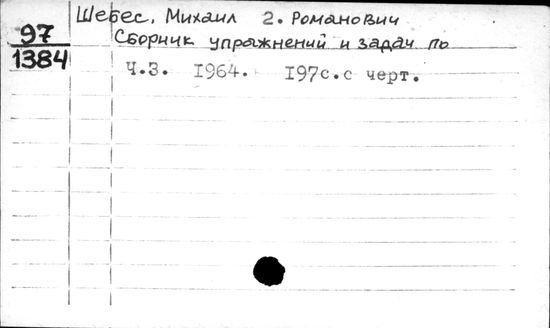 Шебес, Михаил 2. Романович
97
1384
Сборник упражнений и задач по
Ч.3. 1964. 197с.с черт.